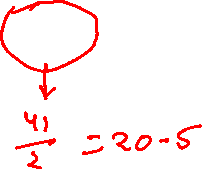 41/2 = 20.5